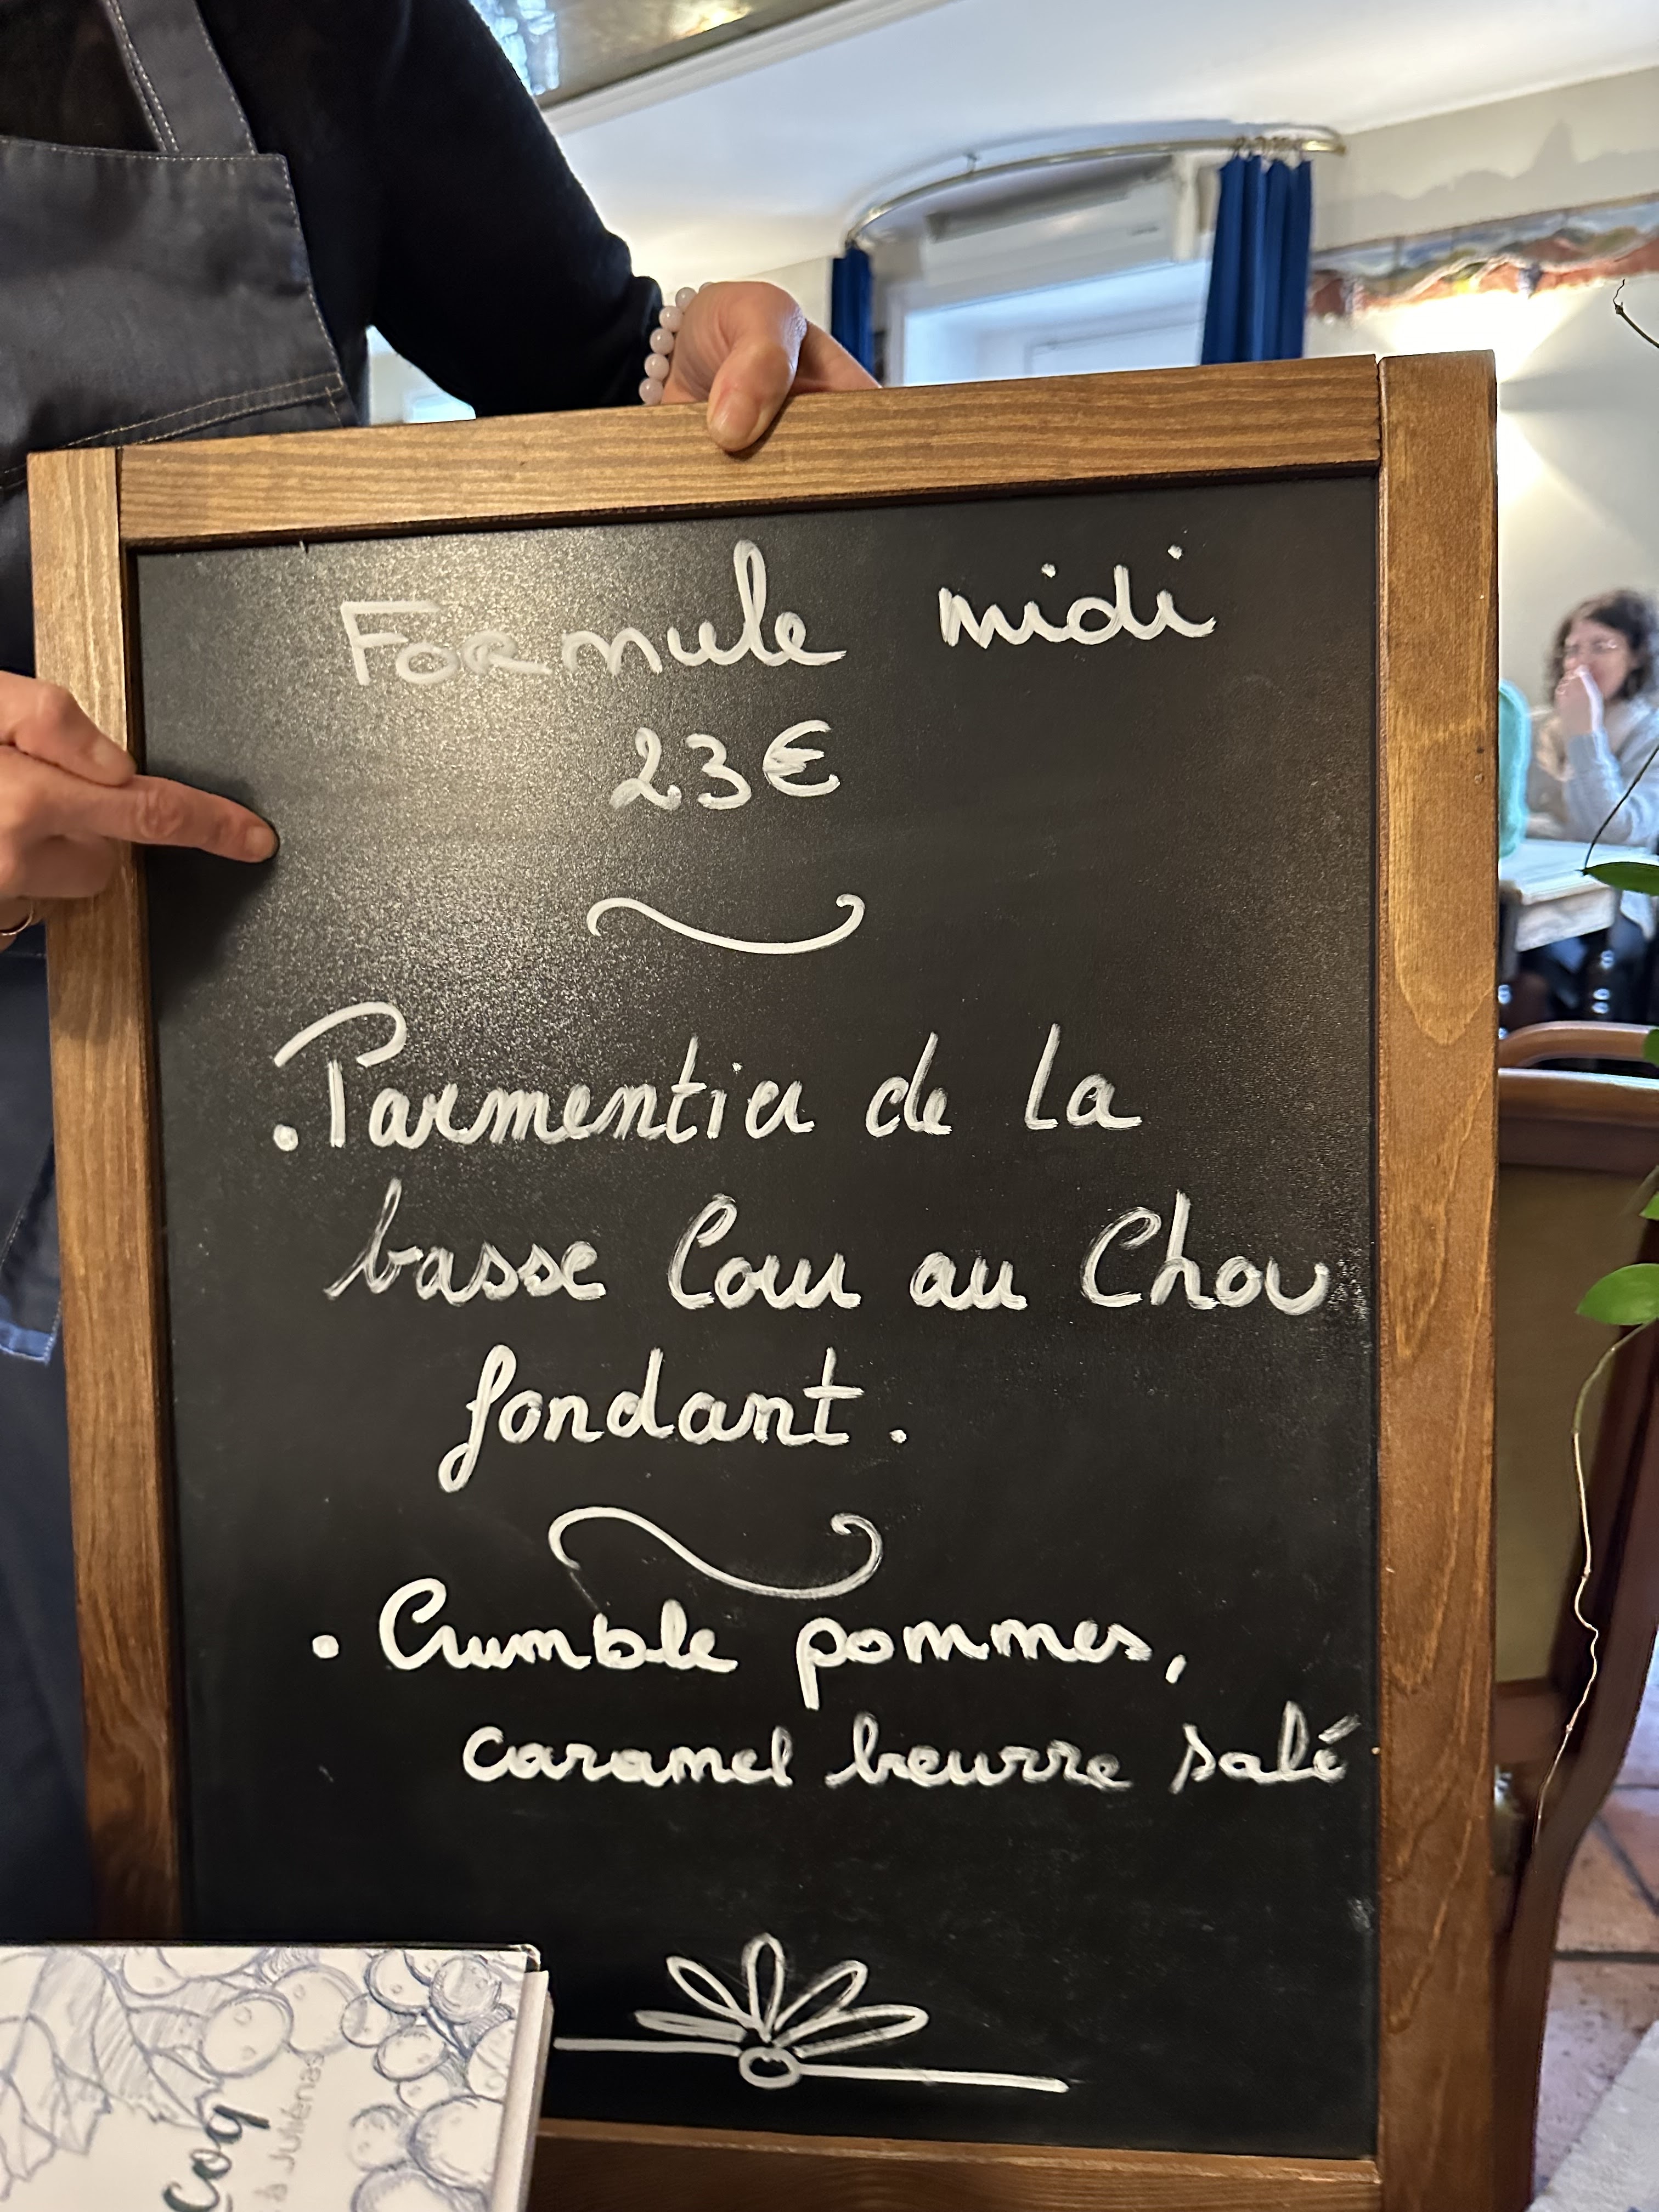 Formule midi
23€
. Parmentier de la
basse Cour au Chou
fondant.
. Crumble pommes,
caramel beurre salé
coq
à Juliénas